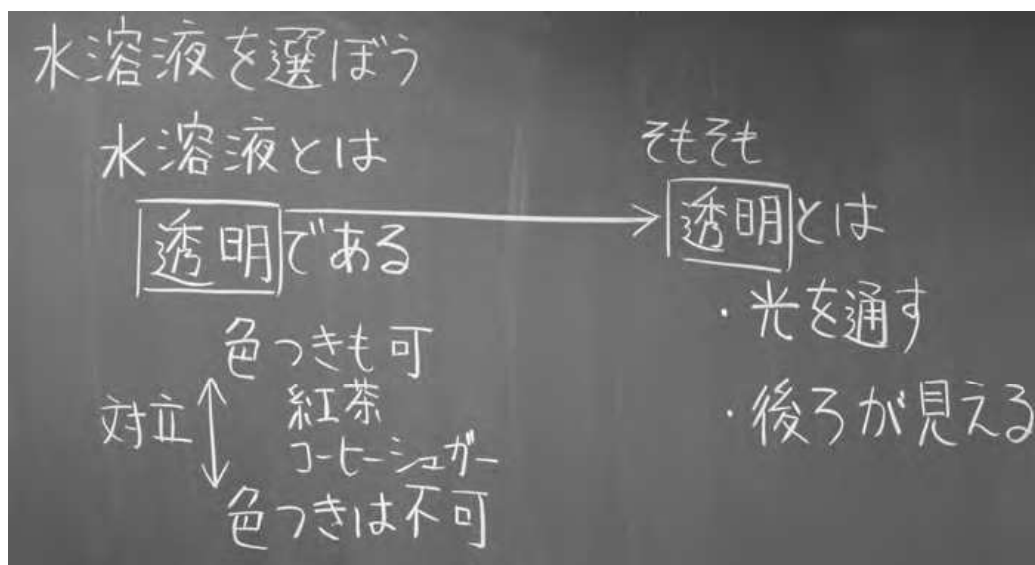 水溶液を選ぼう
水溶液とは
透明である
色つきも可
対立
紅茶
コーヒーシュガー
色つきは不可
そもそも
透明とは
・光を通す
・後ろが見える